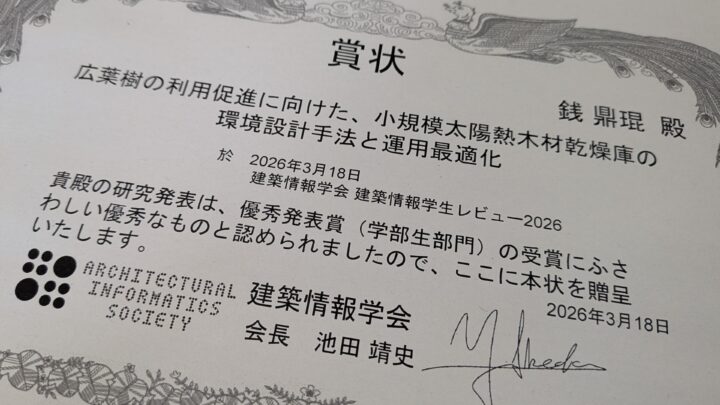 賞状
銭 鼎琨 殿
広葉樹の利用促進に向けた、小規模太陽熱木材乾燥庫の
環境設計手法と運用最適化
於 2026年3月18日
建築情報学会 建築情報学生レビュー2026
貴殿の研究発表は、優秀発表賞（学部生部門）の受賞にふさ
わしい優秀なものと認められましたので、ここに本状を贈呈
いたします。
2026年3月18日
ARCHITECTURAL
INFORMATICS
SOCIETY
建築情報学会
会長 池田 靖史
Y. Ikeda